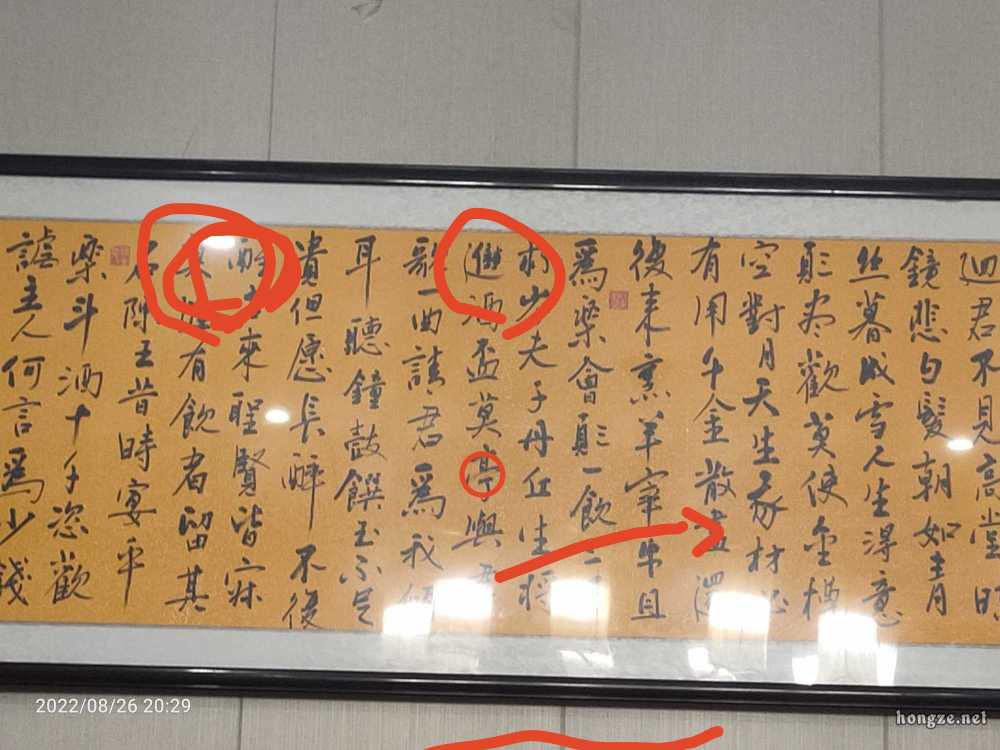 迴君不見高堂明
鏡悲白髮朝如青
丝暮成雪人生得意
須盡歡莫使金樽
空對月天生我材必
有用千金散盡還
復来烹羊宰牛且
爲樂會須一飲三
夫子丹丘生將
進酒盃莫亭與君
歌一曲請君爲我傾
耳聽鐘鼓饌玉不足
貴但愿長醉不復
醒古來聖賢皆寂
寞惟有飲者留其
名陈王昔時宴平
樂斗酒十千恣歡
謔主人何言爲少錢
2022/08/26 20:29
hongze.net